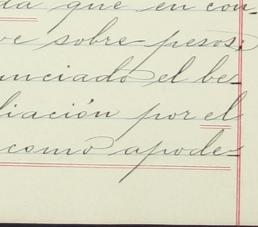 da que en con-
ve sobre pesos;
unciado el be-
liación por el
como apode-